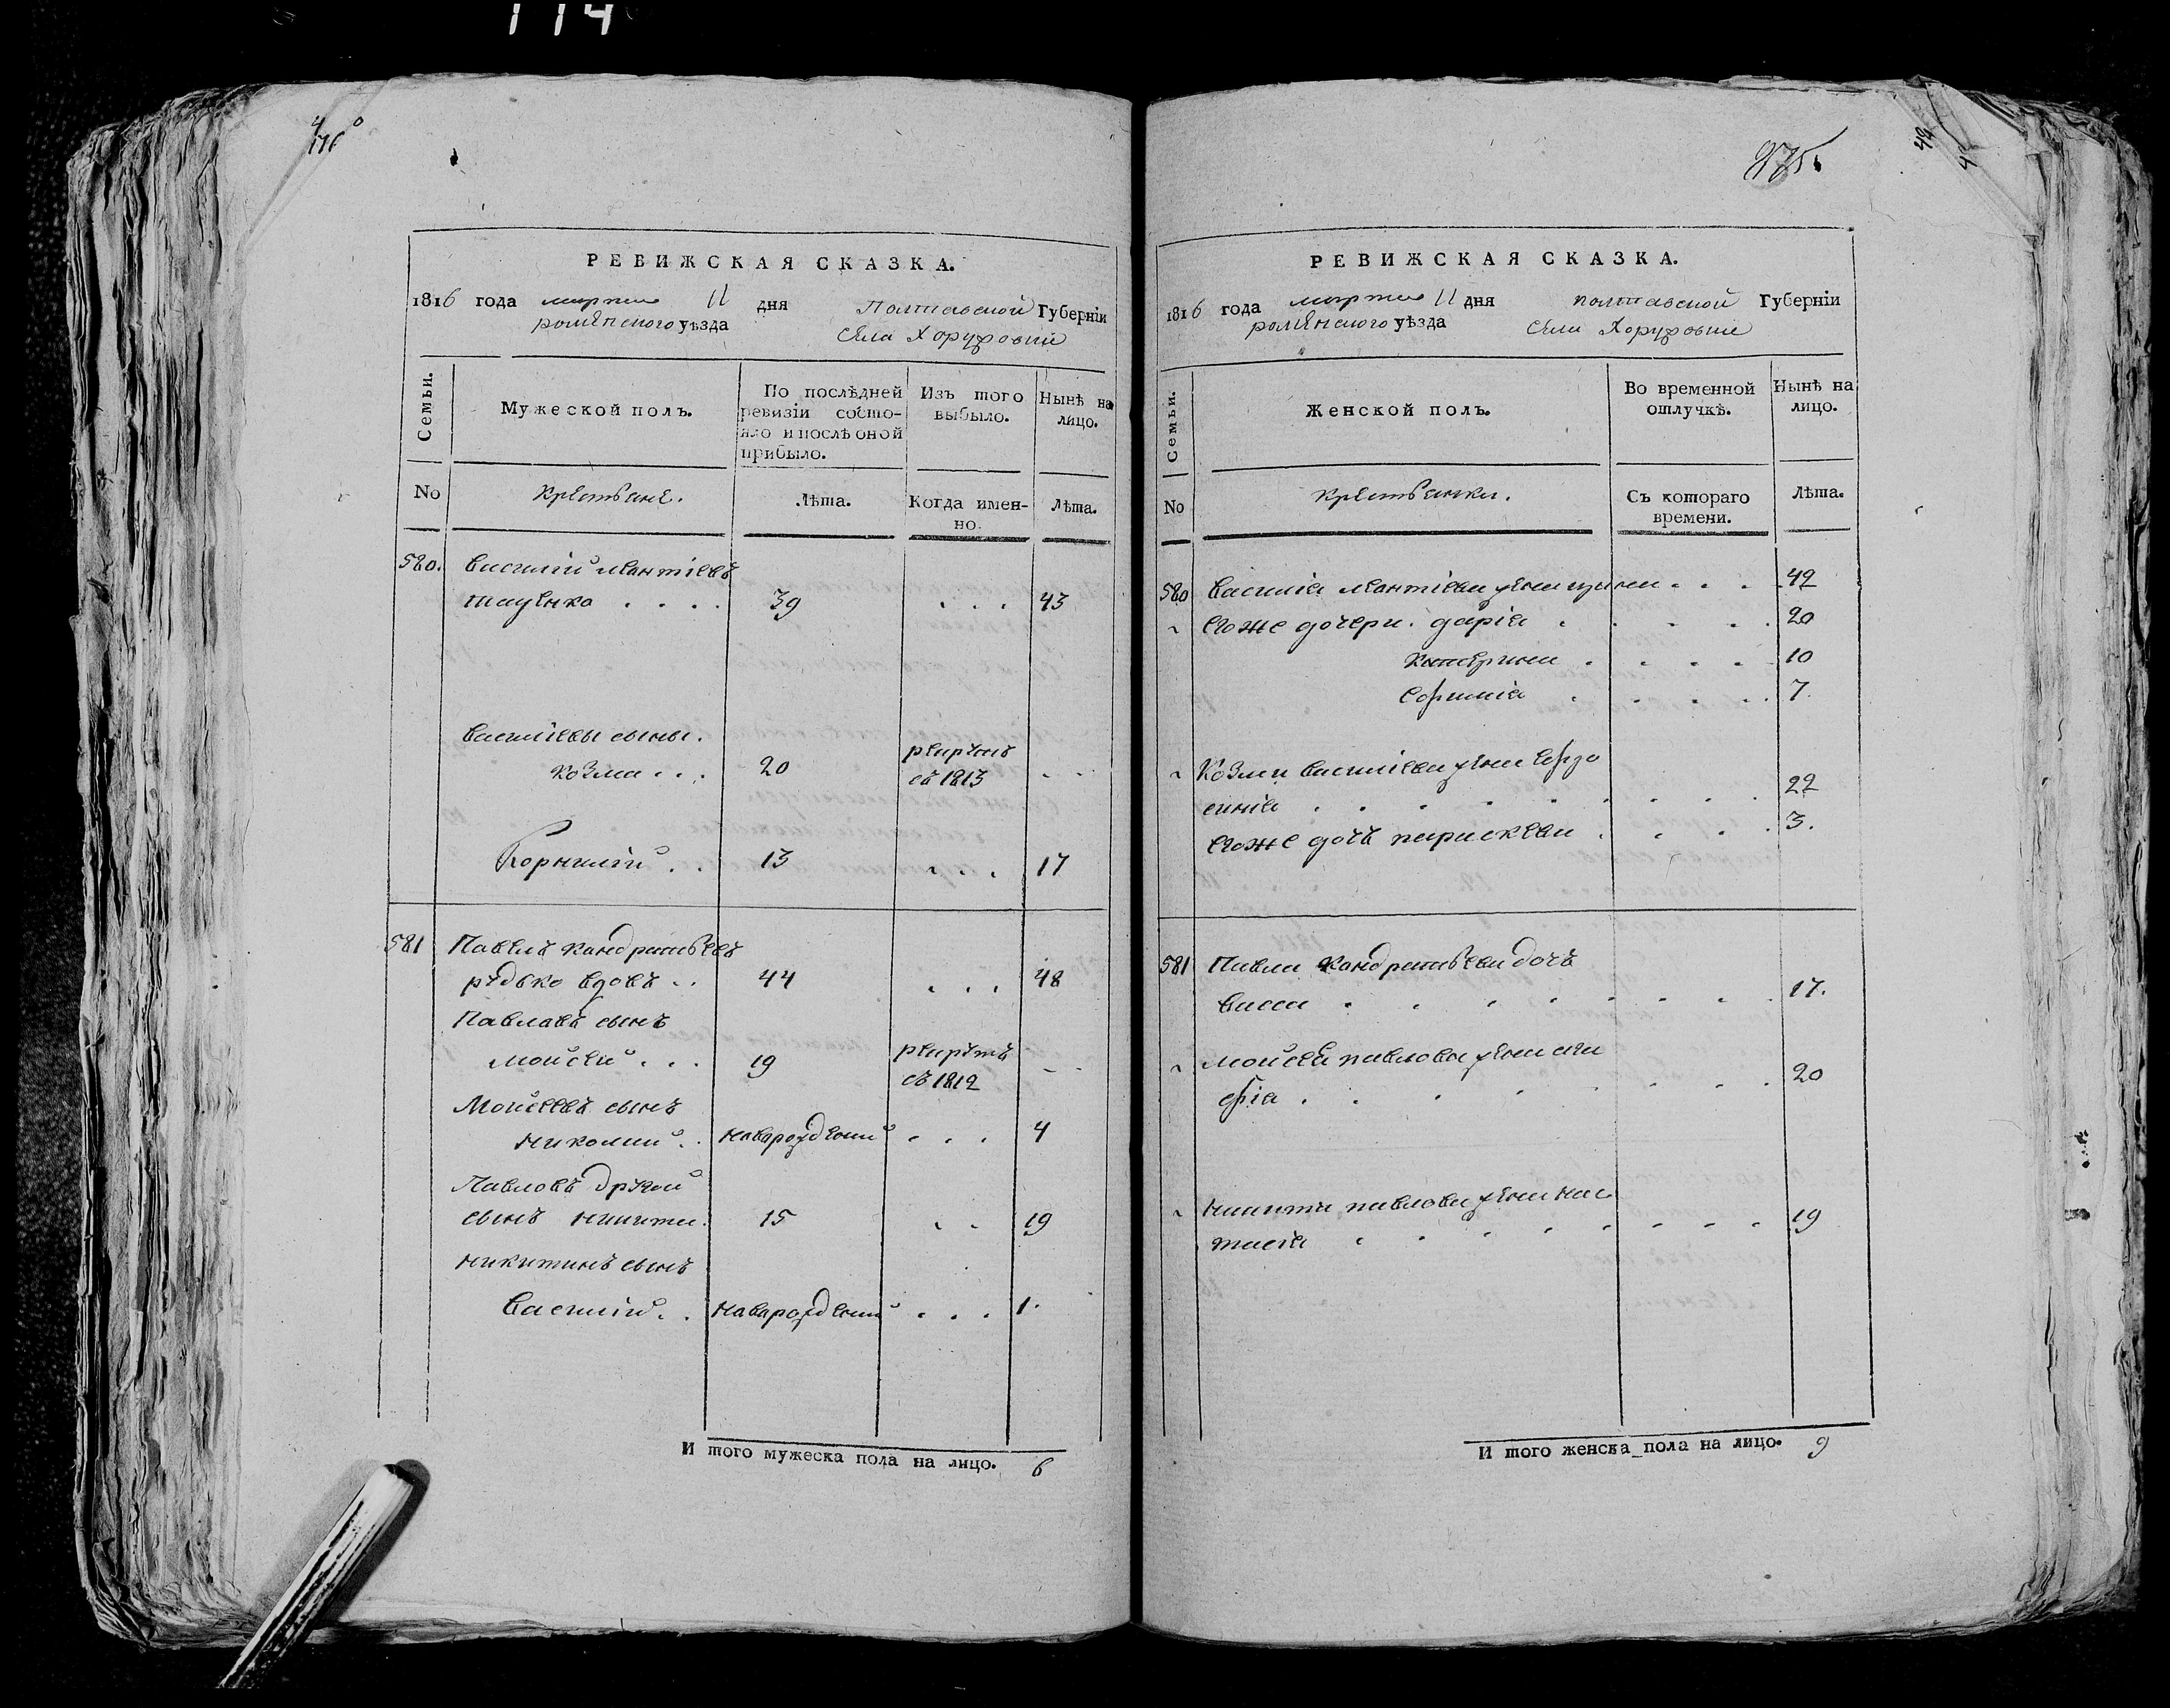 114
РЕВИЖСКАЯ СКАЗКА.
1816 года марта 11 дня Полтавской Губерніи
роменского уѣзда Села Хоружовки
Семьи. Мужеской полъ. По послѣдней ревизіи состояло и послѣ оной прибыло. Изъ того выбыло. Нынѣ на лицо.
No Крестьяне. Лѣта. Когда именно. Лѣта.
580. Василій Леонтіевъ
39 . . . 43
Василіевы сыны.
Козма . . . 20 рекрутъ
въ 1813 - -
Корнилій . . 13 . . . 17
581 Павелъ Кондратьевъ
рудько вдовъ . . 44 . . . 48
Павловъ сынъ
Мойсей . . . 19 рекрутъ
въ 1812 - -
Мойсеевъ сынъ
Николай . . новорожденной . . . 4
Павловъ другой
сынъ никита. 15 . . 19
никитинъ сынъ
Василій . . новорожденой . . . 1.
И того мужеска пола на лицо. 6
875.
РЕВИЖСКАЯ СКАЗКА.
1816 года марта 11 дня полтавской Губерніи
роменского уѣзда Села Хоружовки
Семьи. Женской полъ. Во временной отлучкѣ. Нынѣ на лицо.
No Крестьянки. Съ котораго времени. Лѣта.
580 Василія Леонтіева жена . . . 42
его же дочери. дарія . . . . . 20
Катерина . . . . 10
7.
Козми Василіева жена Евдо
кинія . . . . . . . . 22
его же дочь параскева . . . . 3.
581 Павла Кондратьева дочь
Васса . . . . . . . . 17.
Мойсея павлова жена ага
фіа . . . . . . . 20
никити павлова жена нас
тасіа . . . . . . . 19
И того женска пола на лицо. 9